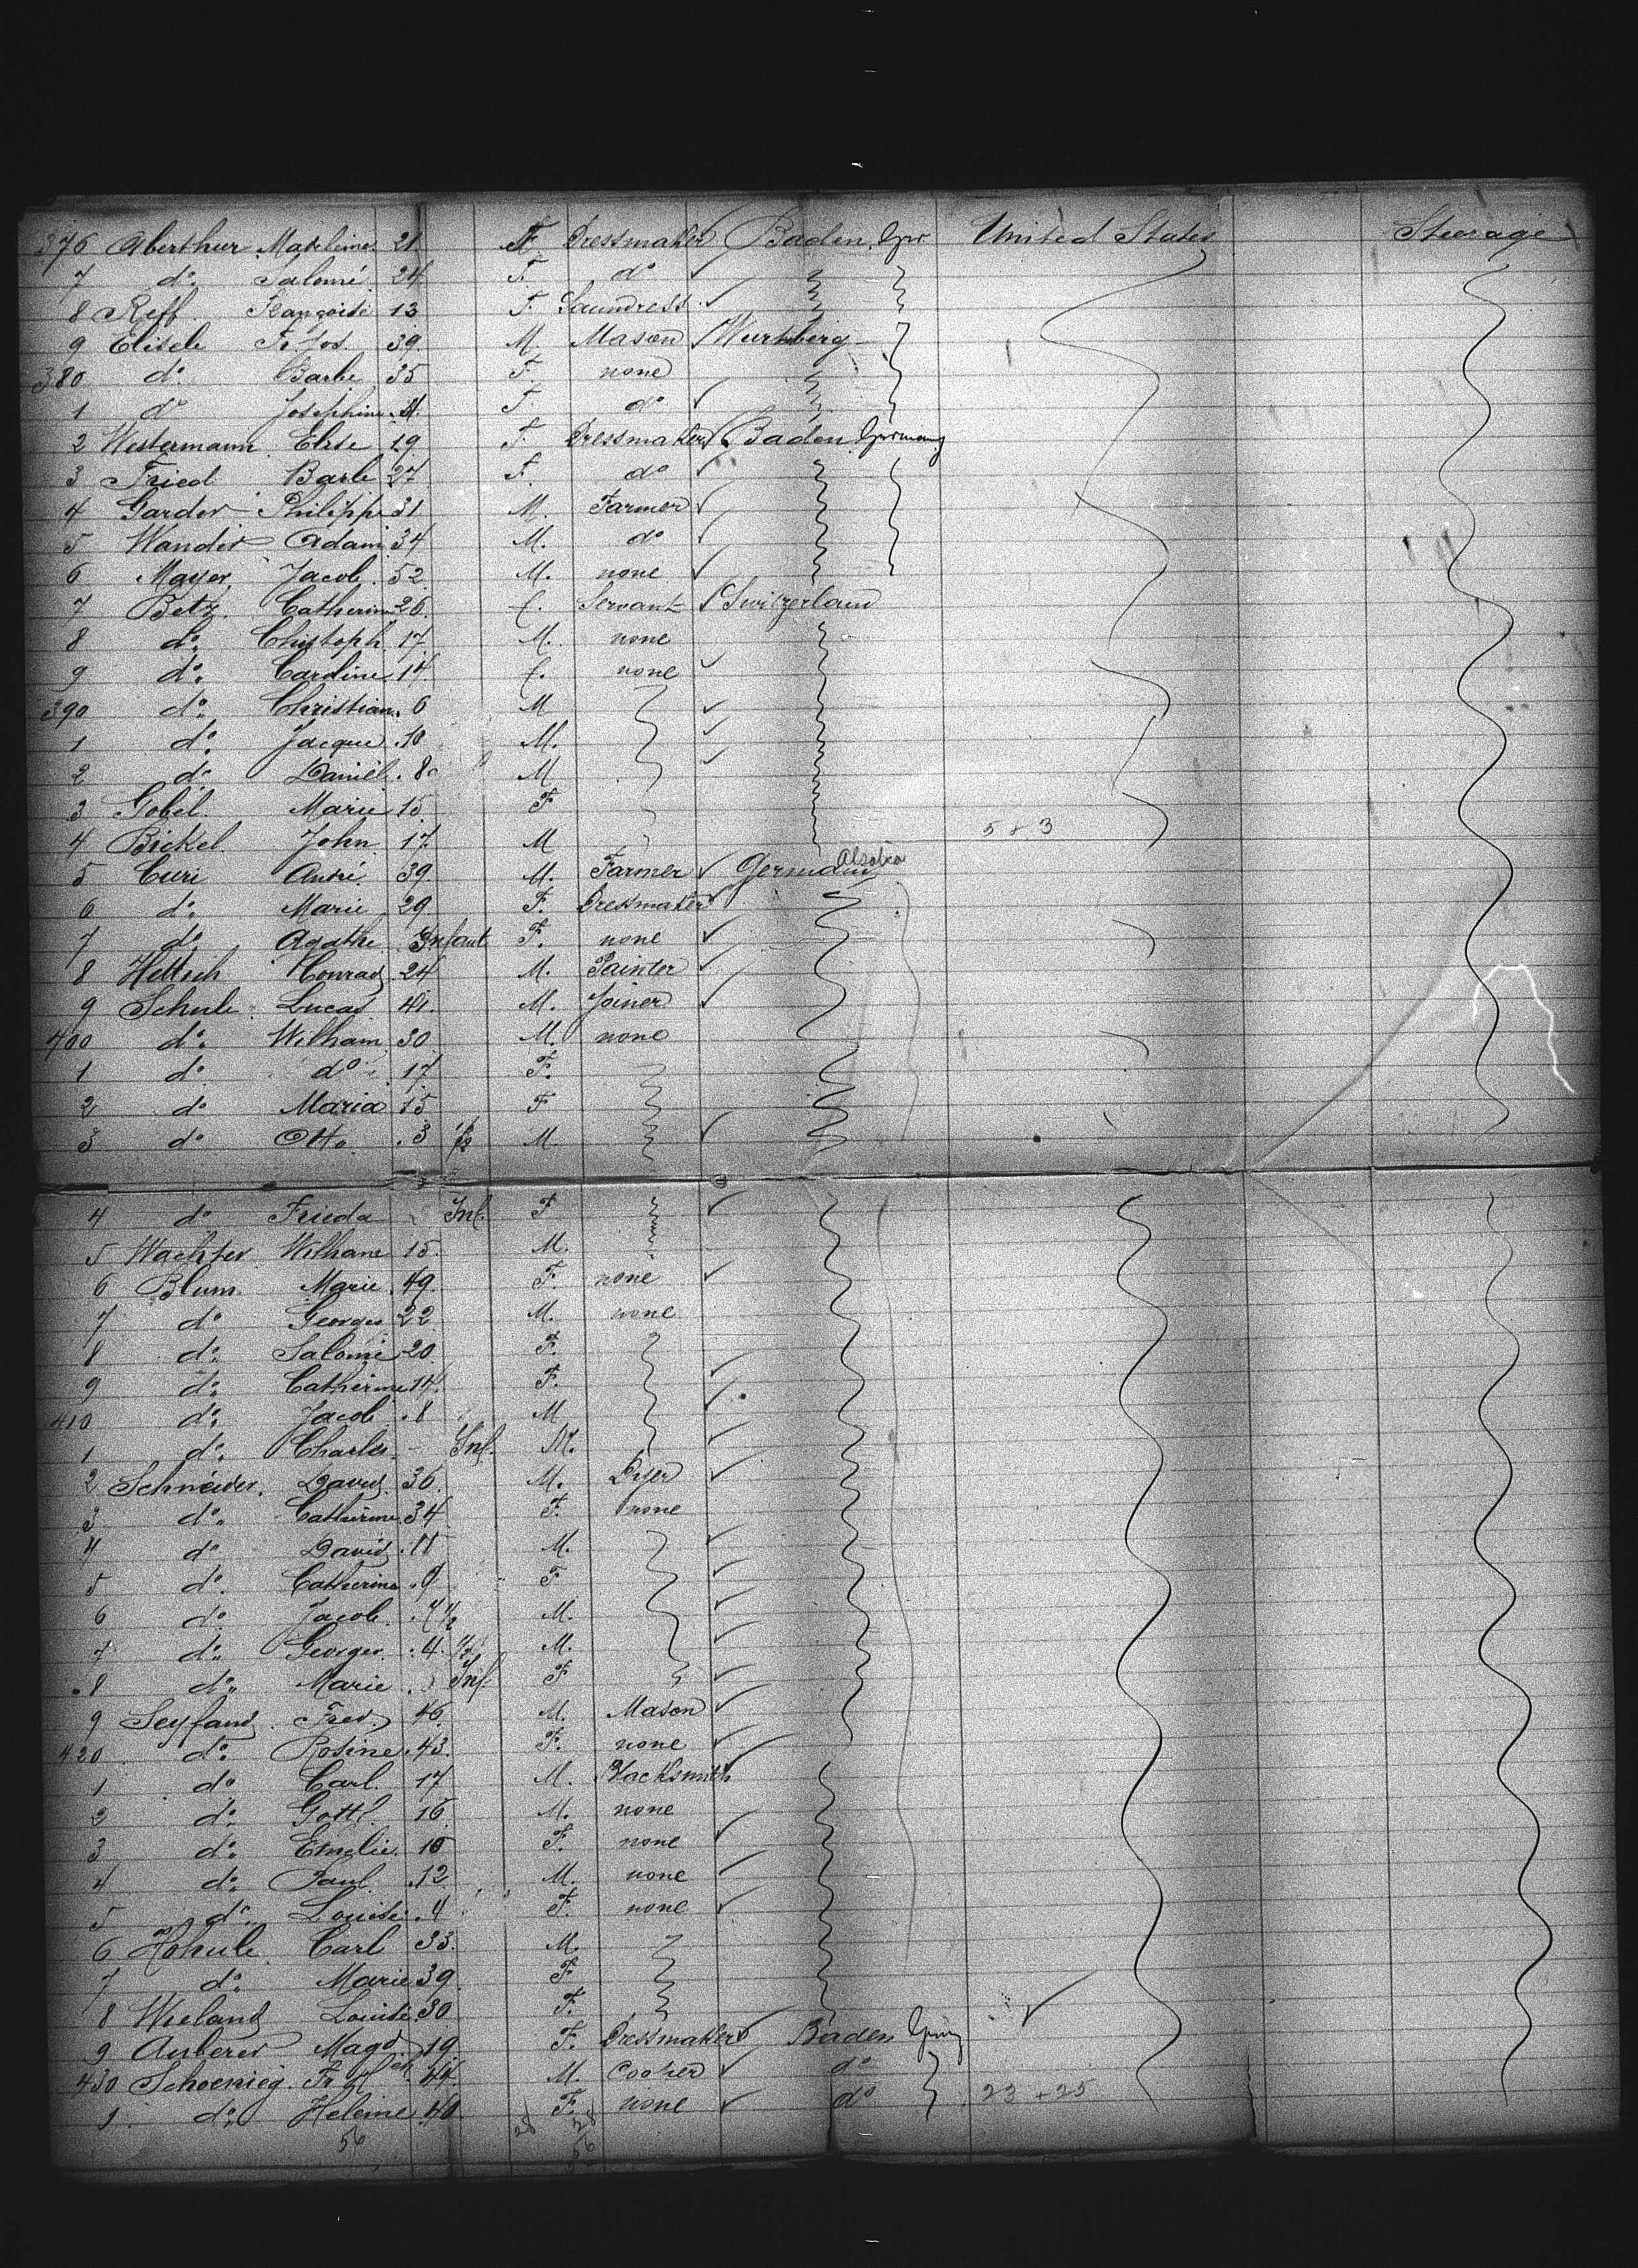 376 Aberthur Madeleine 21 F Dressmaker Baden, Ger United States Steerage
7 do Salomé 24 F. do
8 Reff Françoise 13 F. Laundress
9 Elisele Fr. Jos. 39 M. Mason Wurtberg
380 do Barbe 35 F. none
1 do Josephine 11 F do
2 Westermann Elise 19 F. Dressmaker Baden Germany
3 Fried Barbe 27 F. do
4 Garder Philippe 31 M. Farmer
5 Wander Adam 34 M. do
6 Mayer Jacob 52 M. none
7 Betz Catherine 26 f. Servant Switzerland
8 do Christoph 17 M. none
9 do Caroline 14 f. none
390 do Christian 6 M
1 do Jacque 10 M.
2 do Daniel 8 M
3 Gobel Marie 15 F
4 Bickel John 17 M 5 + 3
5 Curi André 39 M. Farmer Germany Alsatia
6 do Marie 29 F. Dressmaker
7 do Agathe Infant F. none
8 Hettich Conrad 24 M. Painter
9 Schule Lucas 41 M. Joiner
400 do Wilham 30 M. none
1 do do 17 F.
2 do Maria 15 F
3 do Otto 3 1/2 M.
4 do Frieda Inf. F
5 Wachter Wilhane 15 M.
6 Blum Marie 49 F. none
7 do Georges 22 M. none
8 do Salomé 20 F.
9 do Catherine 14 F.
410 do Jacob 8 M
1 do Charles Inf. M.
2 Schneider David 36 M. Dyer
3 do Catherine 34 F. none
4 do David 11 M.
5 do Catherine 9 F
6 do Jacob 7 1/2 M.
7 do Georges 4 1/2 M.
8 do Marie Inf F
9 Seyfand Fred 46 M. Mason
420 do Rosine 43 F. none
1 do Carl 17 M. Blacksmith
2 do Gottl. 16 M. none
3 do Emelie 15 F. none
4 do Paul 12 M. none
5 do Louise 4 F. none
6 Hohule Carl 33 M.
7 do Marie 39 F
8 Wieland Louise 30 F.
9 Auberer Magd. 19 F. Dressmaker Baden Germ
430 Schoenieg Fr. 44 M. Cooper do
1 do Helene 40 F. none do 23 + 25
56 28 28
56